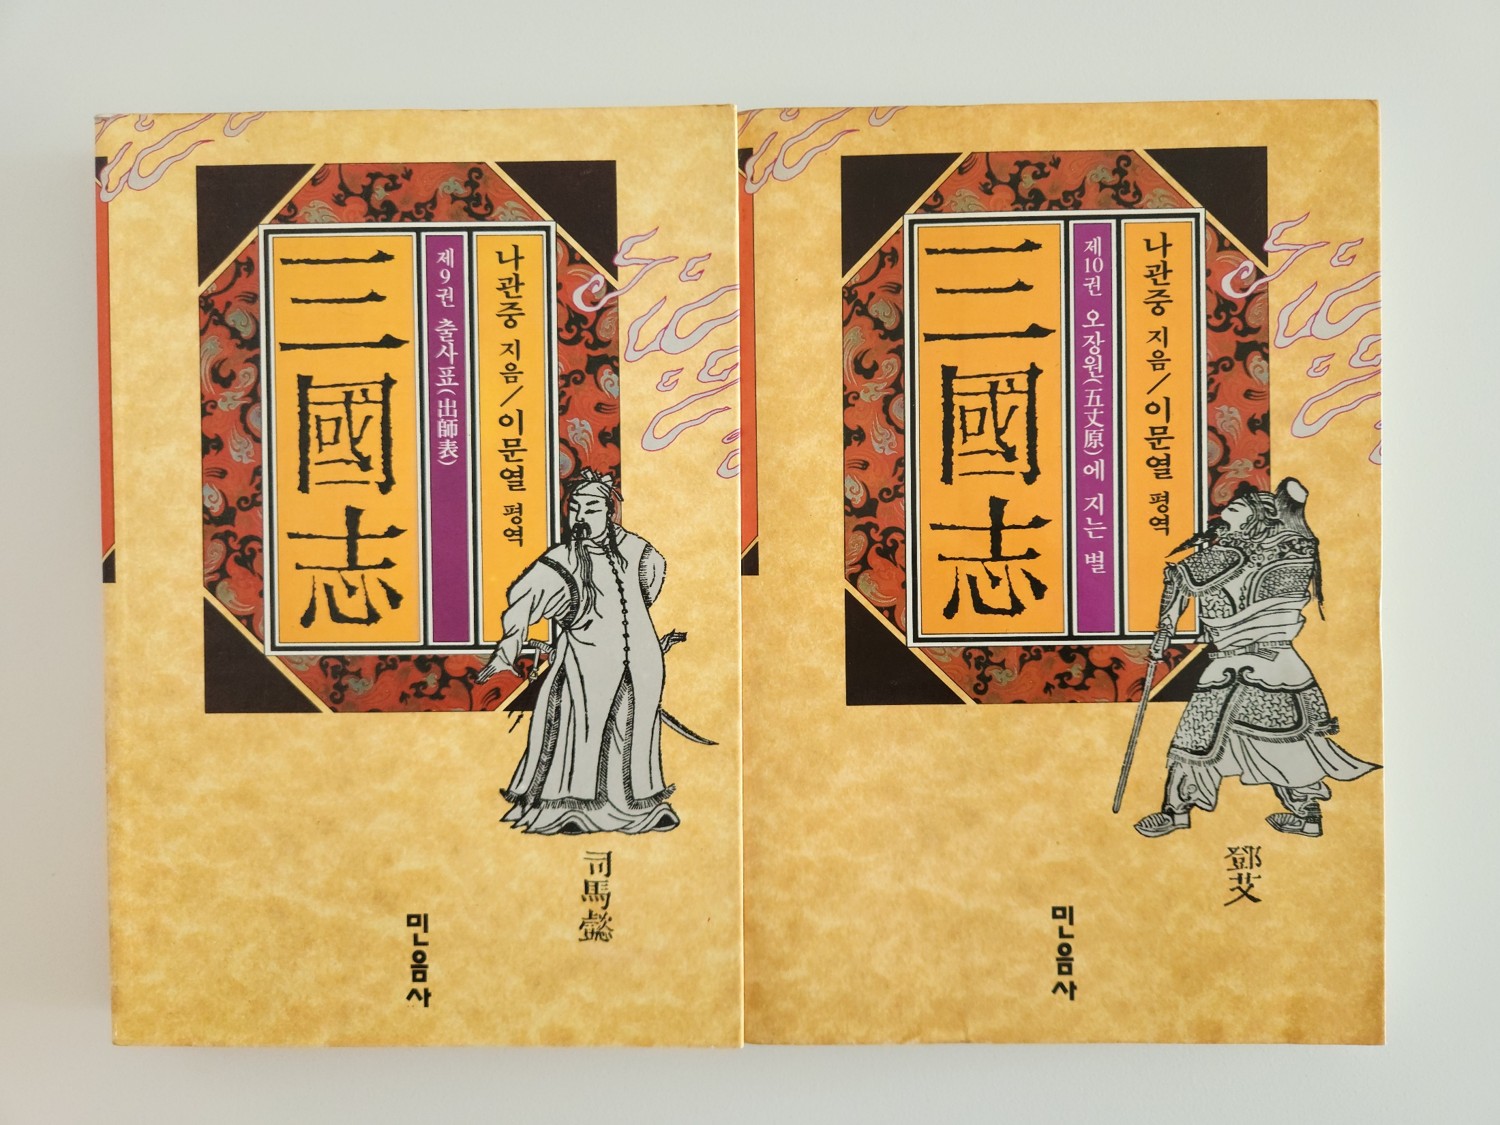 三國志
제9권 출사표(出師表)
나관중 지음/이문열 평역
司馬懿
민음사
三國志
제10권 오장원(五丈原)에 지는 별
나관중 지음/이문열 평역
鄧艾
민음사